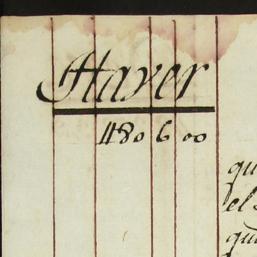 Haver
480600
qu
el
qua